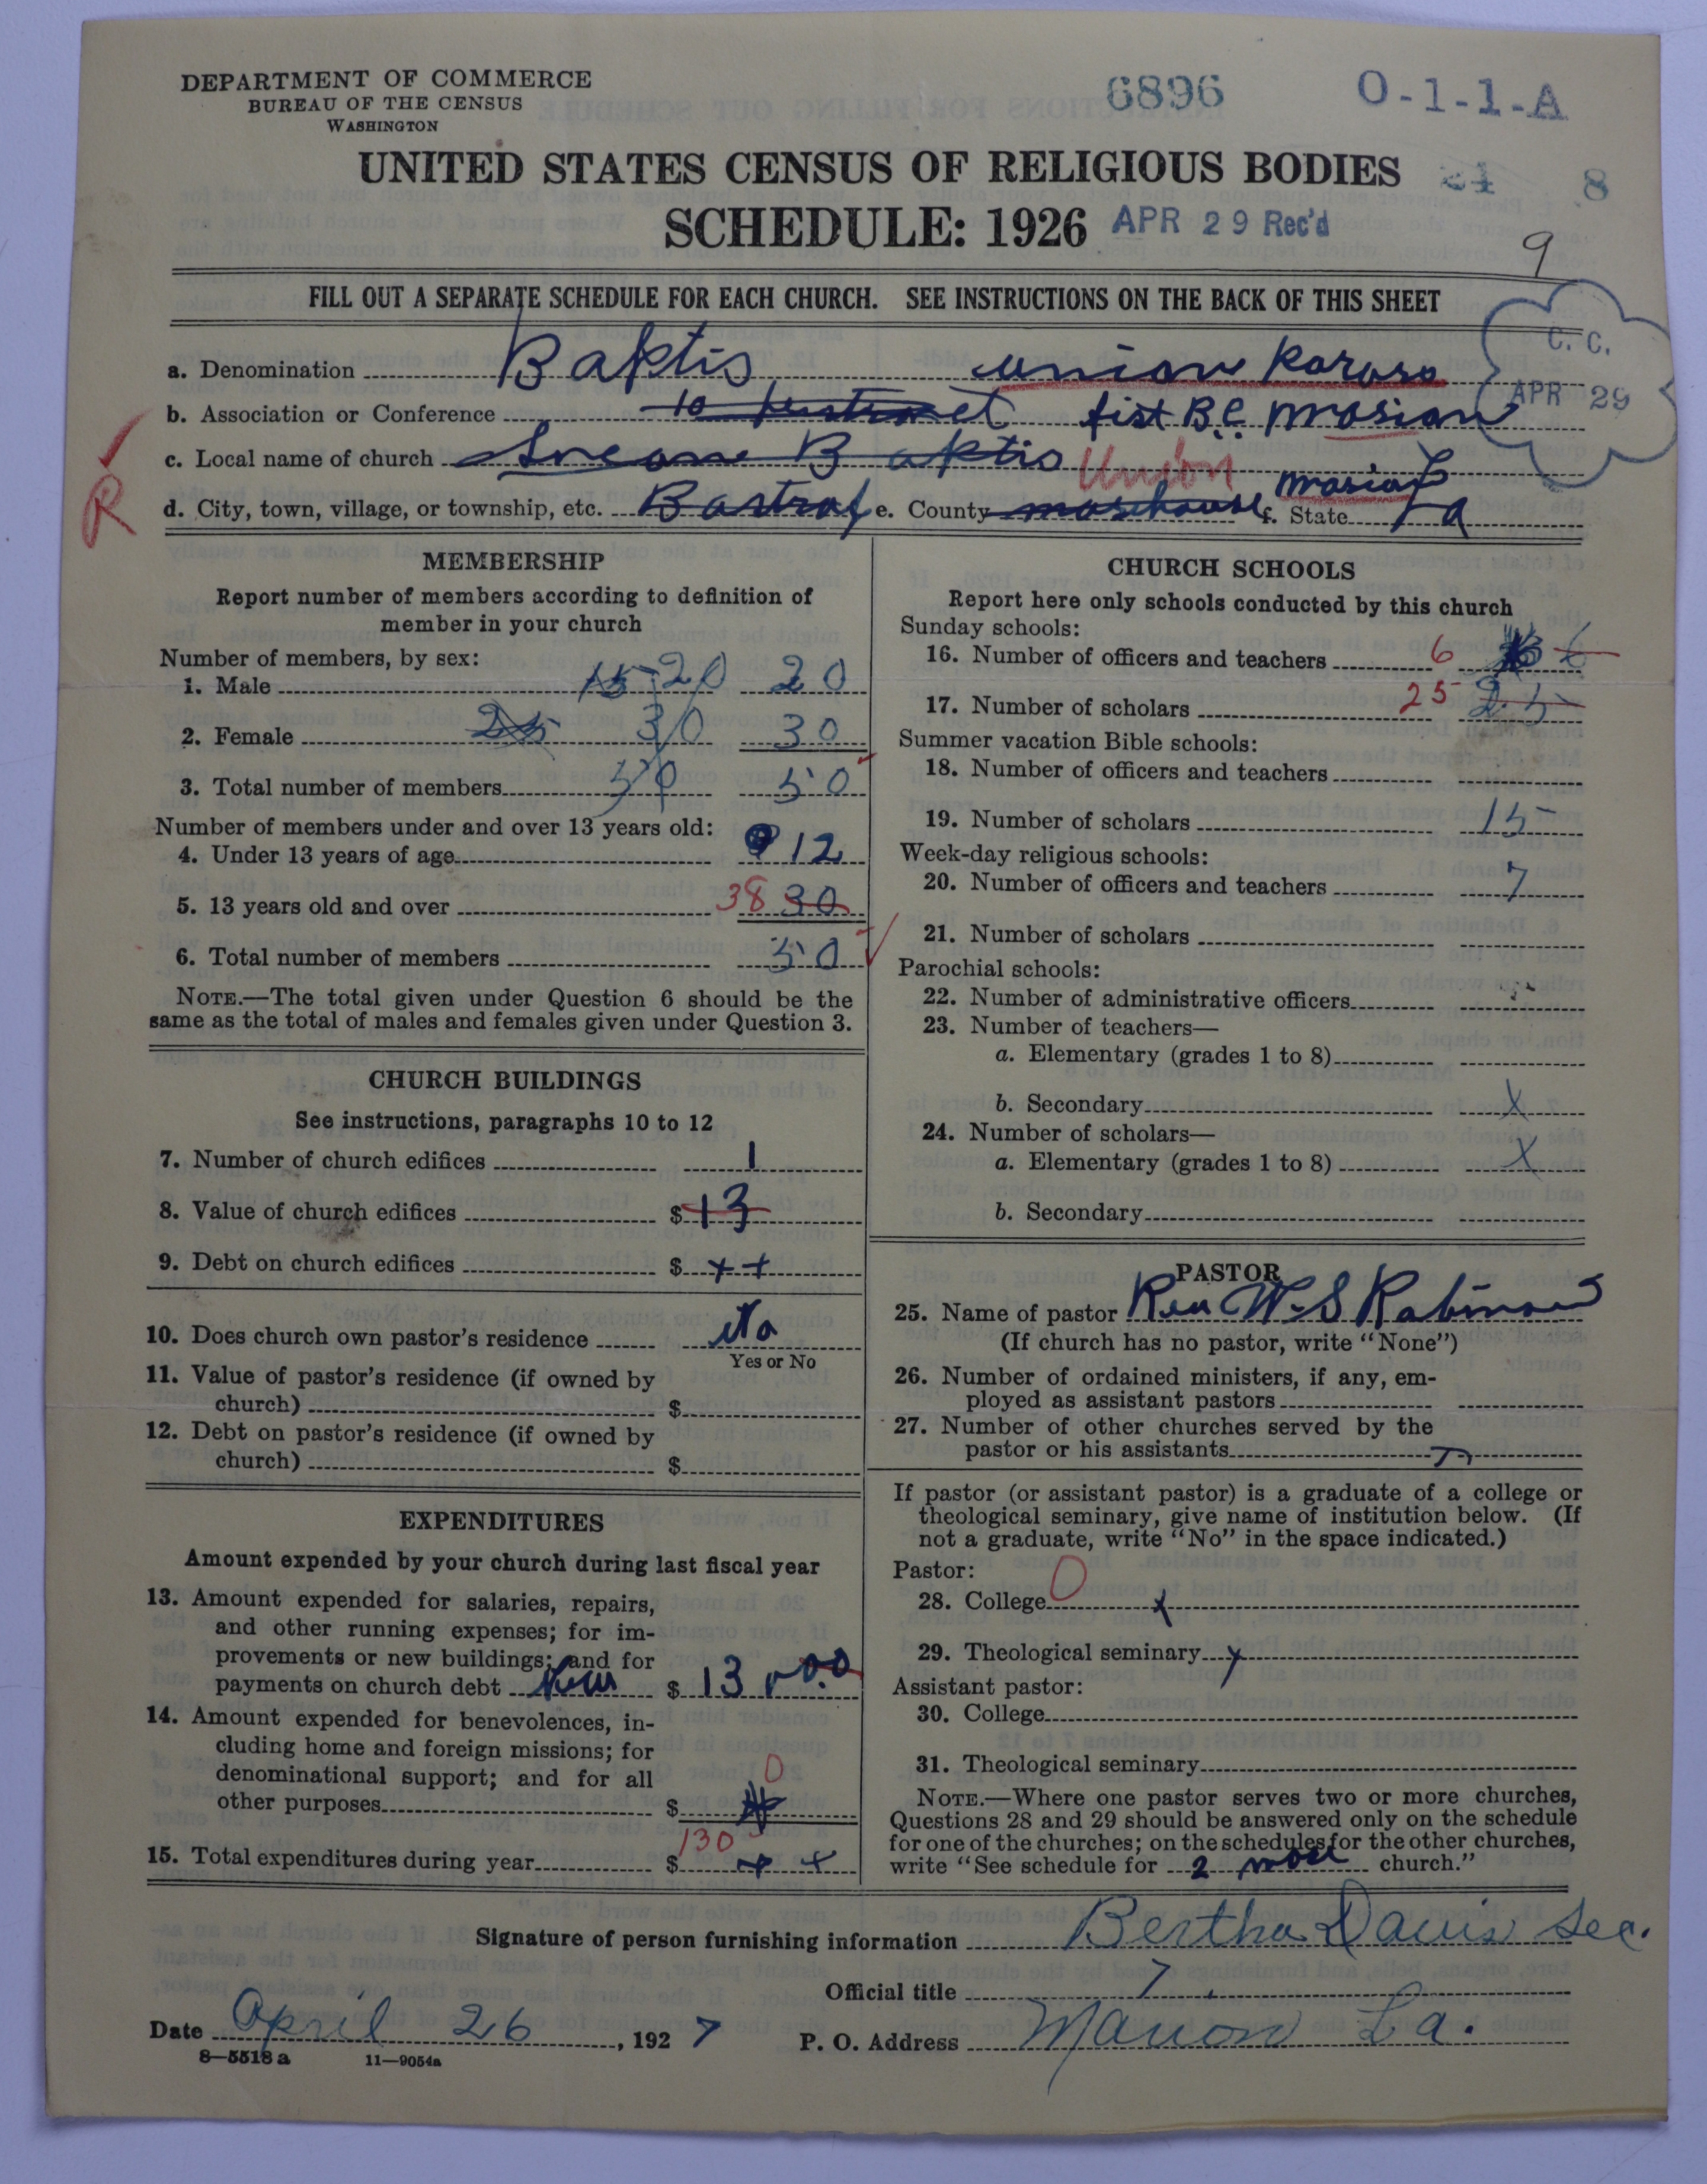 DEPARTMENT OF COMMERCE
BUREAU OF THE CENSUS
WASHINGTON
6896
O-1-1-A
UNITED STATES CENSUS OF RELIGIOUS BODIES
24 8
SCHEDULE: 1926
APR 29 Rec'd
9
FILL OUT A SEPARATE SCHEDULE FOR EACH CHURCH. SEE INSTRUCTIONS ON THE BACK OF THIS SHEET
C. C.
APR 29
a. Denomination Baptis union
b. Association or Conference 10 fist B.C. marian
c. Local name of church Baptis Union
R
d. City, town, village, or township, etc. Bastrof e. County morehouse marian f. State La
MEMBERSHIP
Report number of members according to definition of
member in your church
Number of members, by sex:
1. Male 15 20 20
2. Female 25 30 30
3. Total number of members 50 50
Number of members under and over 13 years old:
4. Under 13 years of age 12
5. 13 years old and over 38 30
6. Total number of members 50
NOTE.—The total given under Question 6 should be the
same as the total of males and females given under Question 3.
CHURCH BUILDINGS
See instructions, paragraphs 10 to 12
7. Number of church edifices 1
8. Value of church edifices $ 13
9. Debt on church edifices $ + +
10. Does church own pastor's residence No
Yes or No
11. Value of pastor's residence (if owned by
church) $
12. Debt on pastor's residence (if owned by
church) $
EXPENDITURES
Amount expended by your church during last fiscal year
13. Amount expended for salaries, repairs,
and other running expenses; for im-
provements or new buildings; and for
payments on church debt $ 13
14. Amount expended for benevolences, in-
cluding home and foreign missions; for
denominational support; and for all 0
other purposes $
130
15. Total expenditures during year $ + +
CHURCH SCHOOLS
Report here only schools conducted by this church
Sunday schools:
16. Number of officers and teachers 6 6
17. Number of scholars 25 25
Summer vacation Bible schools:
18. Number of officers and teachers
19. Number of scholars 15
Week-day religious schools:
20. Number of officers and teachers 7
21. Number of scholars
Parochial schools:
22. Number of administrative officers
23. Number of teachers—
a. Elementary (grades 1 to 8)
b. Secondary X
24. Number of scholars—
a. Elementary (grades 1 to 8) X
b. Secondary
PASTOR
25. Name of pastor Rev W. S Rabinson
(If church has no pastor, write "None")
26. Number of ordained ministers, if any, em-
ployed as assistant pastors
27. Number of other churches served by the
pastor or his assistants
If pastor (or assistant pastor) is a graduate of a college or
theological seminary, give name of institution below. (If
not a graduate, write "No" in the space indicated.)
Pastor:
28. College 0 x
29. Theological seminary x
Assistant pastor:
30. College
31. Theological seminary
NOTE.—Where one pastor serves two or more churches,
Questions 28 and 29 should be answered only on the schedule
for one of the churches; on the schedules for the other churches,
write "See schedule for 2 more church."
Signature of person furnishing information Bertha Davis Sec.
Official title 7
Date April 26, 1927
P. O. Address Marion La.
8—5518 a 11—9054a